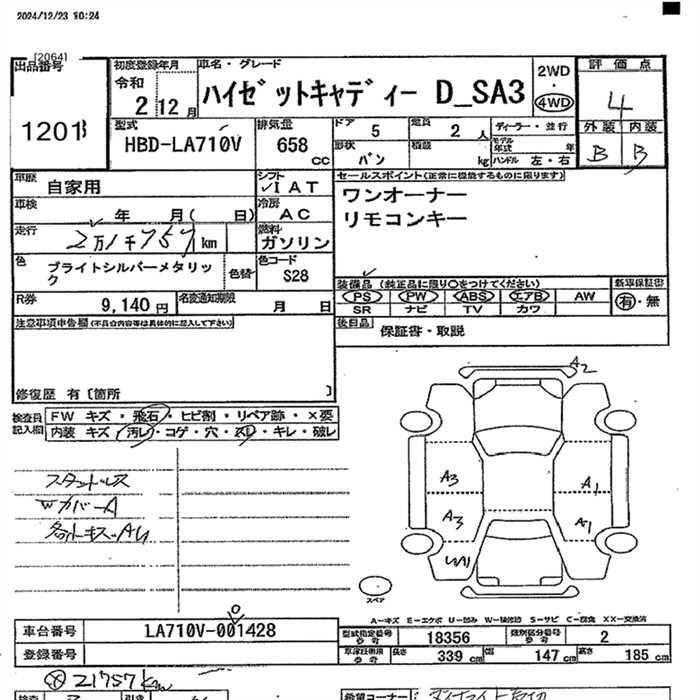 2024/12/23 10:24
[2064]
出品番号
1201
初度登録年月
令和
2 12 月
車名・グレード
ハイゼットキャディー D_SA3
2WD
・
4WD
評価点
4
外装 内装
B B
型式
HBD-LA710V
排気量
658 cc
ドア 5
定員 2 人
ディーラー・並行
モデル年式 年
形状 バン
積載 kg
ハンドル 左・右
車歴 自家用
シフト ✓IAT
セールスポイント(正常に機能するものに限ります)
ワンオーナー
リモコンキー
車検 年 月( 日)
冷房 AC
走行 2万1千757 km
燃料 ガソリン
色 ブライトシルバーメタリック
色替
色コード S28
装備品 (純正品に限り○をつけてください)
新車保証書
PS PW ABS エアB AW
有・無
SR ナビ TV カワ
R券 9,140 円
名変通知期限 月 日
後日品 保証書・取説
注意事項申告欄(不具合内容等は具体的に記入して下さい)
修復歴 有〔箇所 〕
検査員記入欄
FW キズ・飛石・ヒビ割・リペア跡・X要
内装 キズ・汚レ・コゲ・穴・スレ・キレ・破レ
スタットレス
Wカバー A
A2
A3
A3
A1
A1
スペア
A-キズ E-エクボ U-凹み W-補修跡 S-サビ C-腐食 XX-交換済
車台番号 LA710V-001428
型式指定番号 参考 18356
類別区分番号 参考 2
登録番号
車検証情報 参考 長さ 339 cm 幅 147 cm 高さ 185 cm
21757 km
希望コーナー